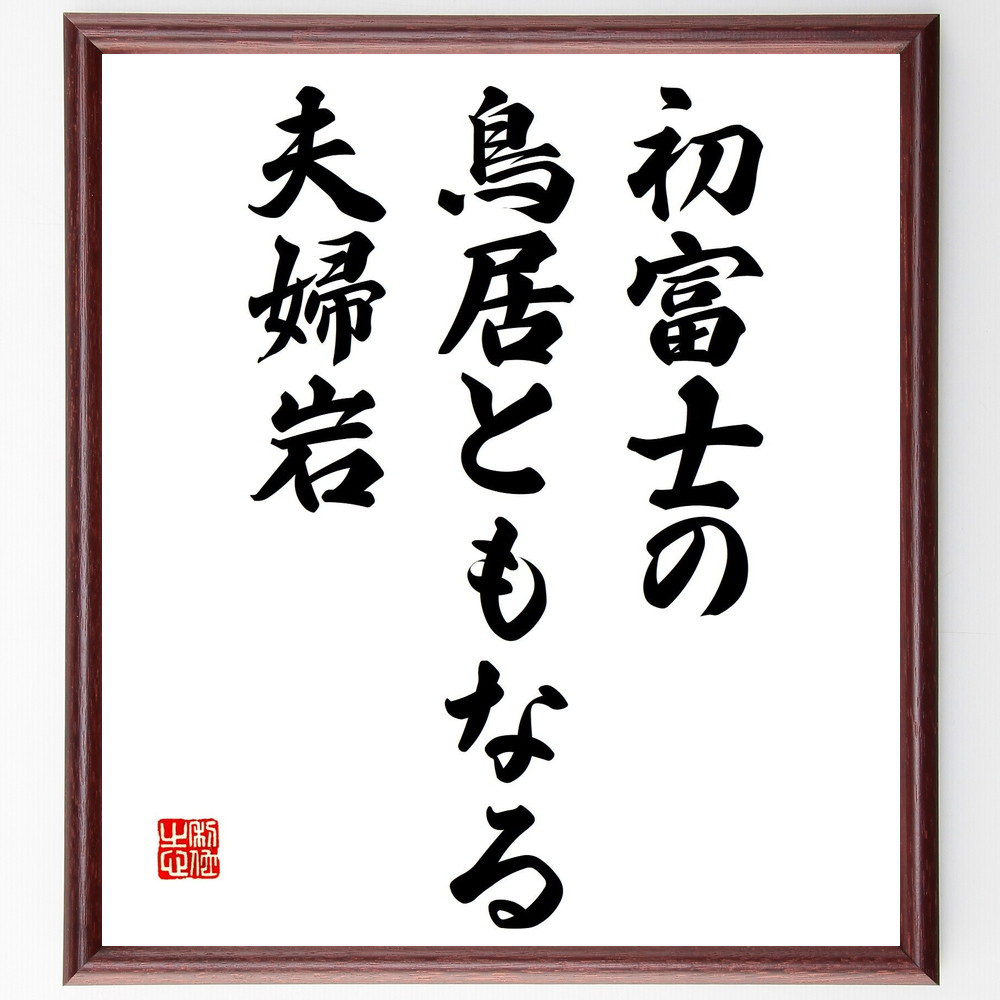 初富士の
鳥居ともなる
夫婦岩